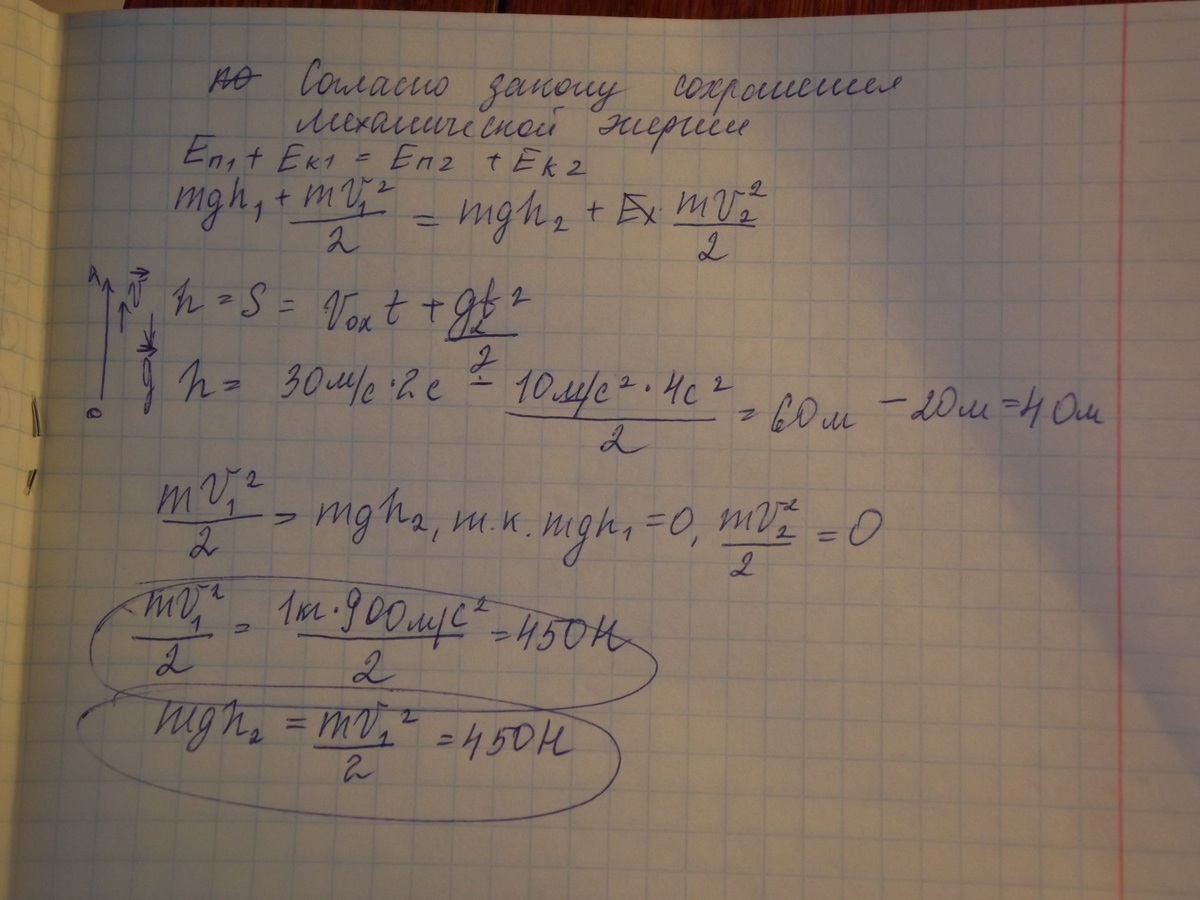 по Согласно закону сохранения
механической энергии
Eп1 + Eк1 = Eп2 + Eк2
mgh₁ + mV₁²/2 = mgh₂ + Eк mV₂²/2
x V⃗ h = S = Vₒₓt + gt²/2
0 g⃗ h = 30м/с · 2с - 10м/с² · 4с²/2 = 60м - 20м = 40м
mV₁²/2 = mgh₂, т.к. mgh₁ = 0, mV₂²/2 = 0
mV₁²/2 = 1кг · 900м/с²/2 = 450Н
mgh₂ = mV₁²/2 = 450Н